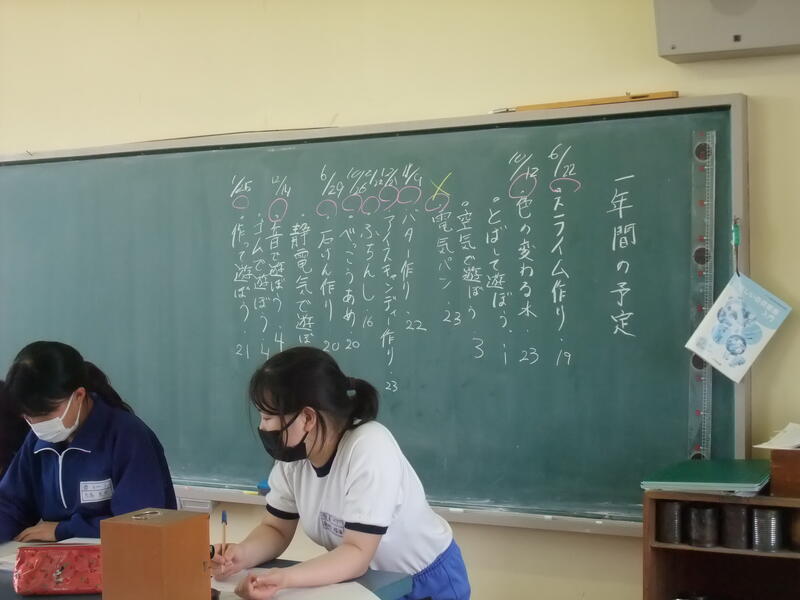 一年間の予定
6/22 スライム作り・19
10/12 ・色の変わる水・23
・とばして遊ぼう・1
・空気で遊ぼう 3
・電気パン・23
バター作り・22
アイスキャンディー作り・23
・ぶちんし・16
・べっこうあめ 20
6/29 ・石けん作り 20
・静電気で遊ぼ
12/14 ・音で遊ぼう・4
・ゴムで遊ぼう・4
1/25 ・作って遊ぼう・21